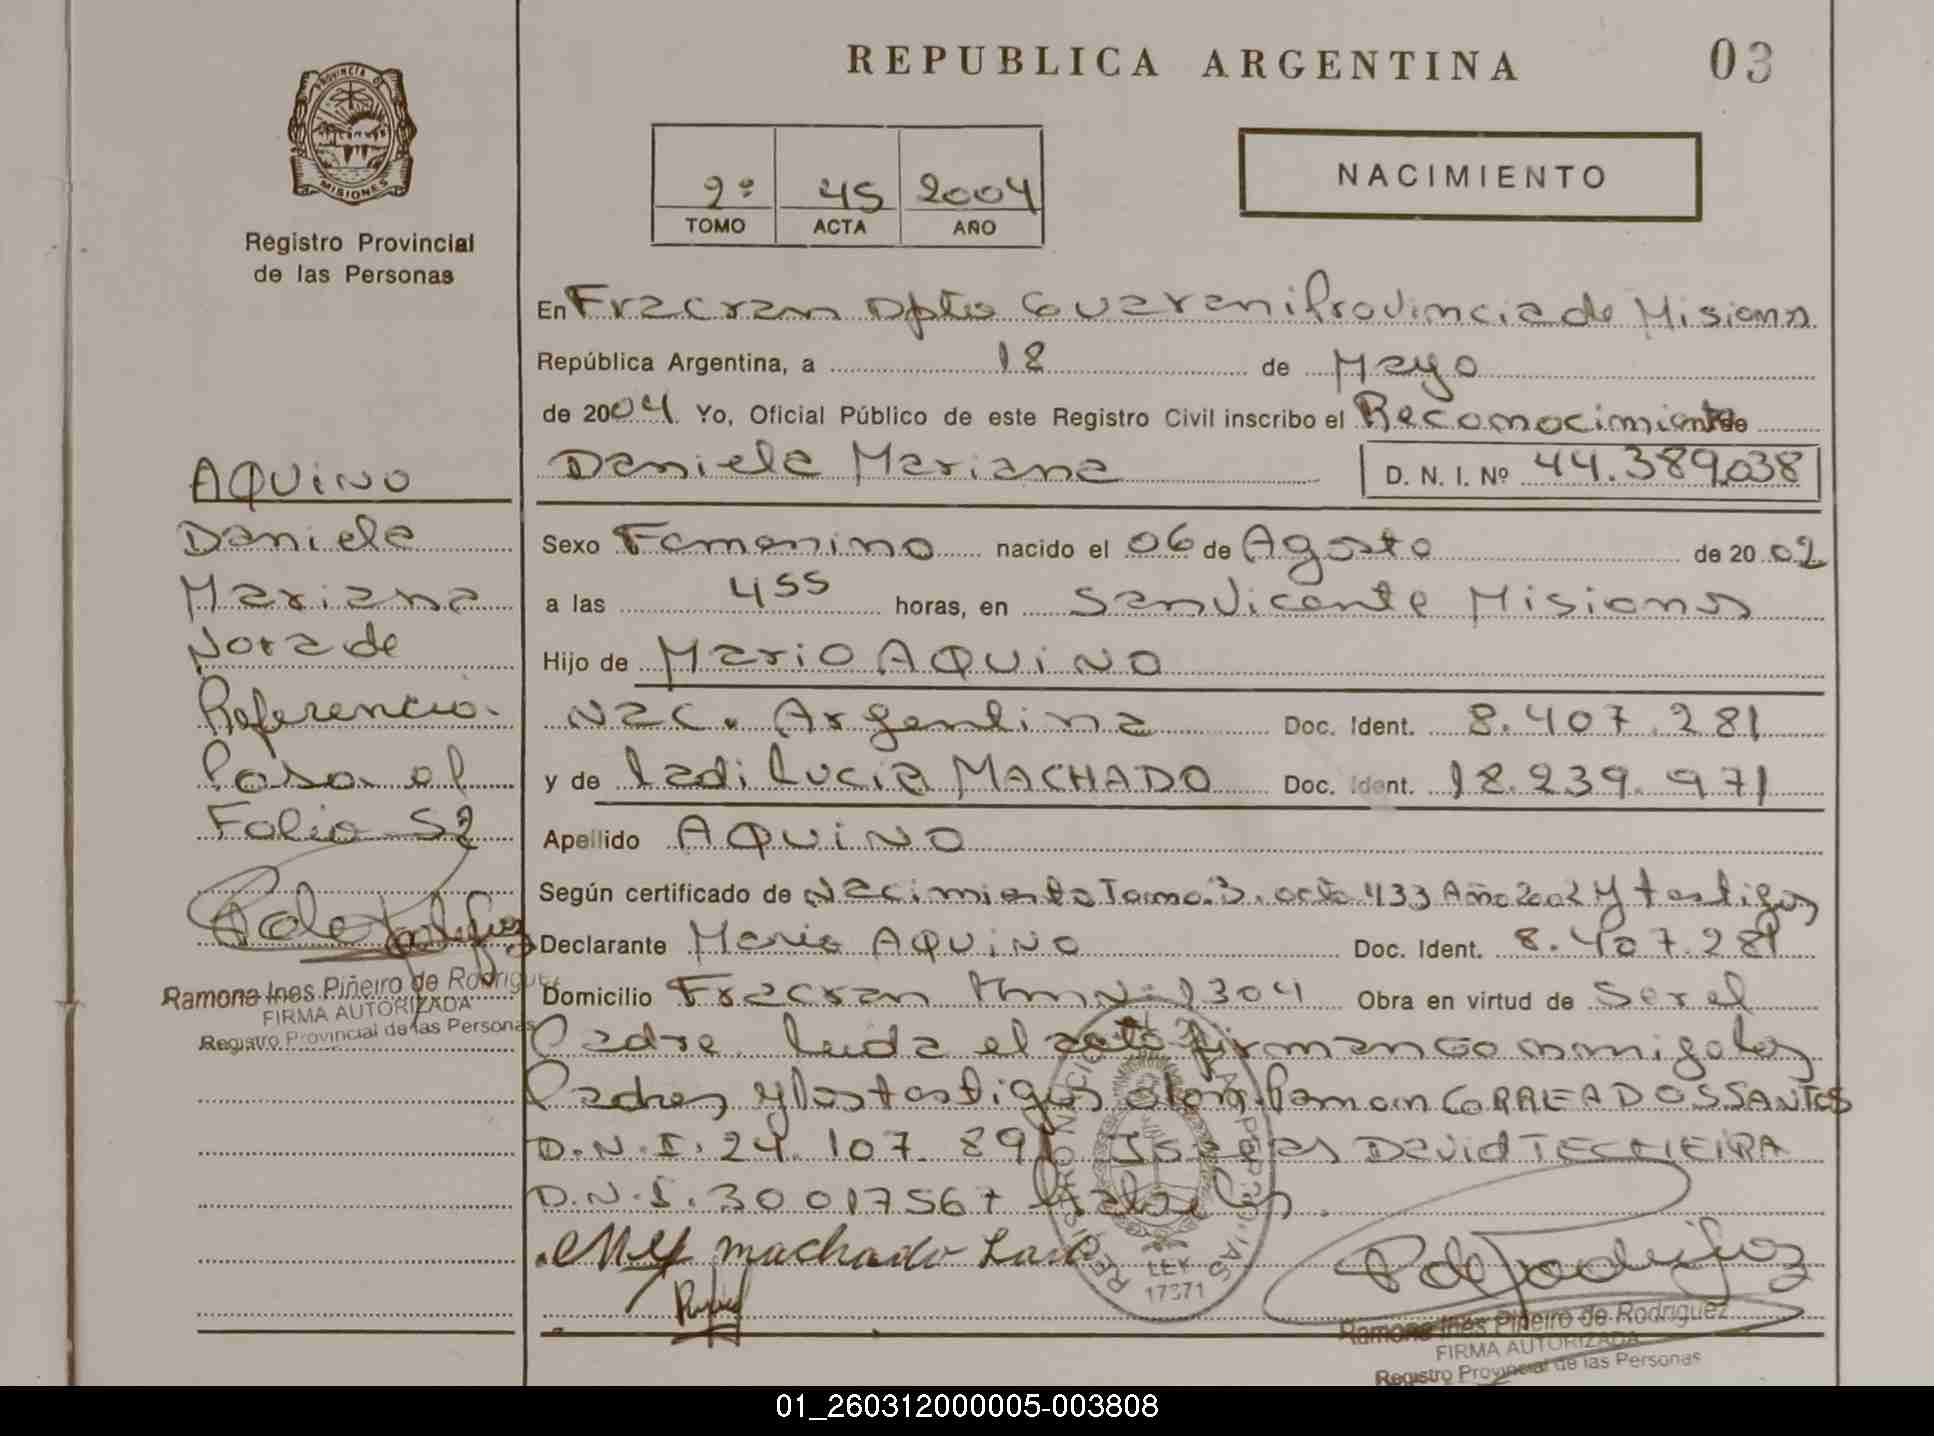 REPUBLICA ARGENTINA
03
PROVINCIA DE
MISIONES
Registro Provincial
de las Personas
2º 45 2004
TOMO ACTA AÑO
NACIMIENTO
En Fracran Dpto Guarani Provincia de Misiones
República Argentina, a 18 de Mayo
de 2004 Yo, Oficial Público de este Registro Civil inscribo el Reconocimiento de
Daniela Mariana D. N. I. Nº 44.389.038
AQUiNO
Daniela
Mariana
Nota de
Referencia.
Pasa al
Folio 52
Ramona Ines Piñeiro de Rodriguez
FIRMA AUTORIZADA
Registro Provincial de las Personas
Sexo Femenino nacido el 06 de Agosto de 20 02
a las 455 horas, en San Vicente Misiones
Hijo de Mario AQUiNO
Nac. Argentina Doc. Ident. 8.407.281
y de Ladi Lucia MACHADO Doc. Ident. 18.239.971
Apellido AQUiNO
Según certificado de Nacimiento Tomo.3. acta 433 Año 2002 y testigos
Declarante Mario AQUiNO Doc. Ident. 8.407.281
Domicilio Fracran Km N. 1304 Obra en virtud de Ser el
Padre. Leida el acta firman conmigo los
Padres y los testigos Ramon CORREA DOS SANTOS
D.N.I. 24.107.891 David TECHEIRA
D.N.I. 30017567
machado
REGISTRO NACIONAL DE LAS PERSONAS
LEY
17671
Ramona Ines Piñeiro de Rodriguez
FIRMA AUTORIZADA
Registro Provincial de las Personas
01_260312000005-003808